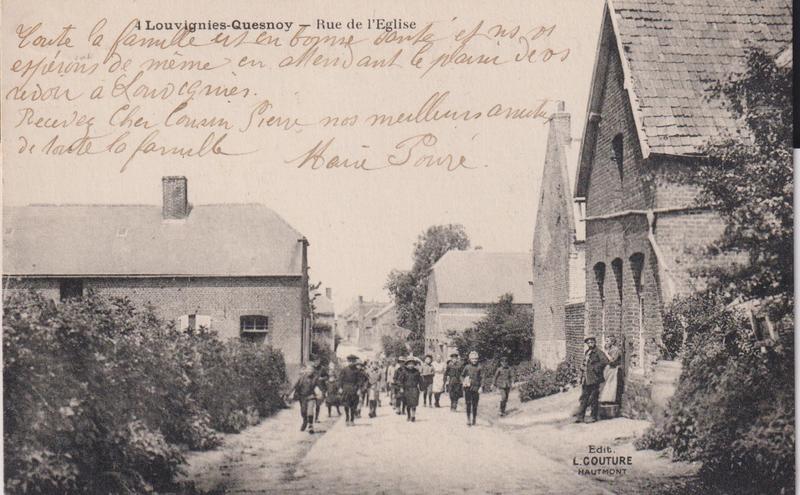 4 Louvignies-Quesnoy – Rue de l'Eglise
Toute la famille est en bonne santé et ns vs
espérons de même en attendant le plaisir de vs
revoir à Louvignies.
Recevez Cher Cousin Pierre nos meilleurs amitiés
de toute la famille Marie Pouré.
Edit.
L. COUTURE
HAUTMONT